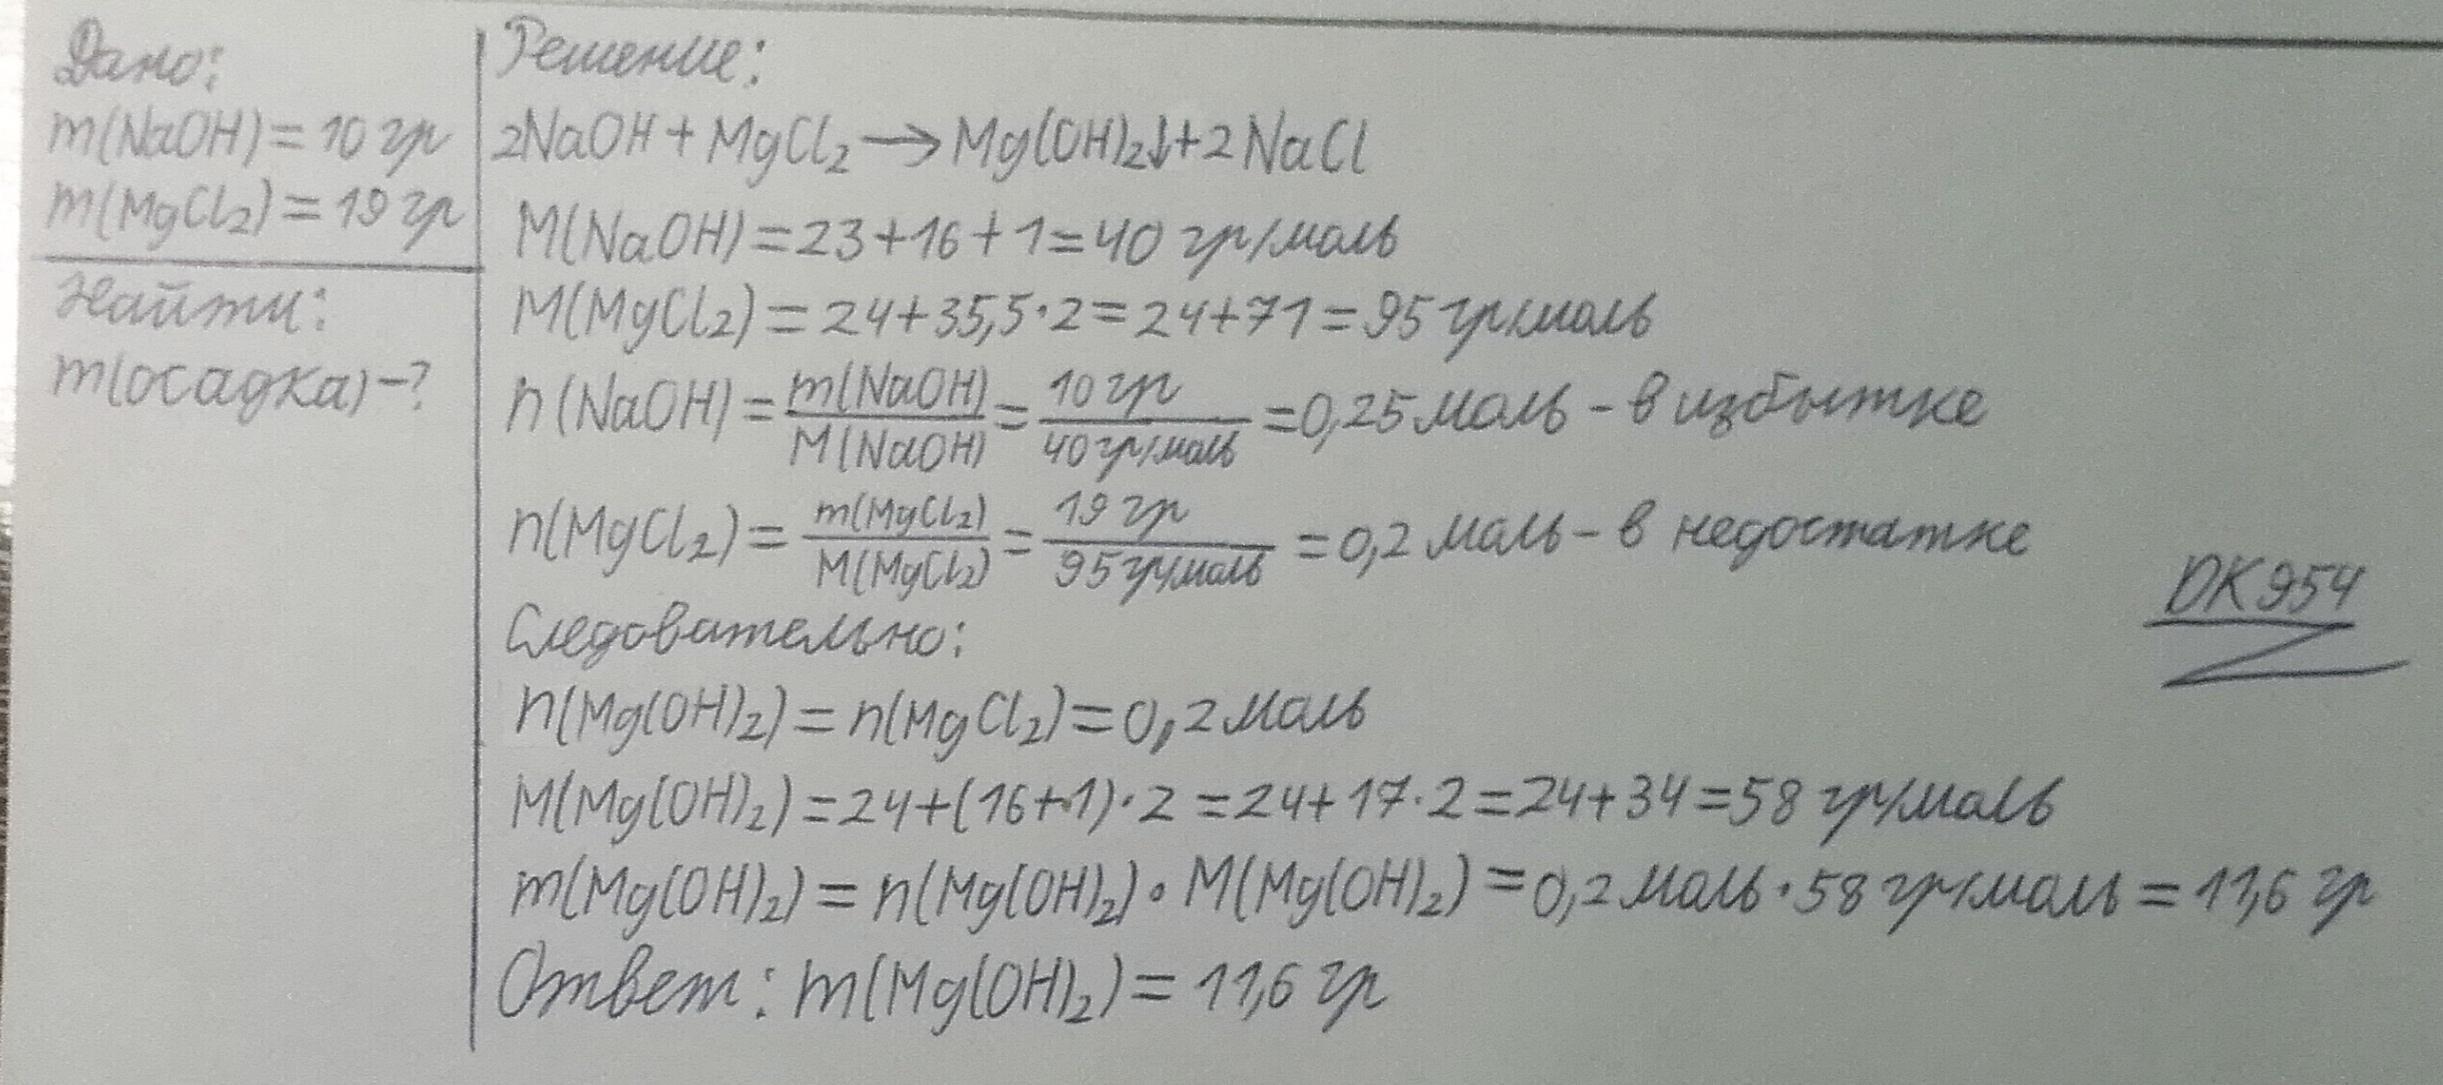 Дано:
m(NaOH)=10 гр
m(MgCl₂)=19 гр
Найти:
m(осадка)-?
Решение:
2NaOH+MgCl₂→Mg(OH)₂↓+2NaCl
M(NaOH)=23+16+1=40 гр/моль
M(MgCl₂)=24+35,5·2=24+71=95 гр/моль
n(NaOH)=m(NaOH)/M(NaOH)=10 гр/40 гр/моль=0,25 моль-в избытке
n(MgCl₂)=m(MgCl₂)/M(MgCl₂)=19 гр/95 гр/моль=0,2 моль-в недостатке
DK954
Следовательно:
n(Mg(OH)₂)=n(MgCl₂)=0,2 моль
M(Mg(OH)₂)=24+(16+1)·2=24+17·2=24+34=58 гр/моль
m(Mg(OH)₂)=n(Mg(OH)₂)·M(Mg(OH)₂)=0,2 моль·58 гр/моль=11,6 гр
Ответ: m(Mg(OH)₂)=11,6 гр